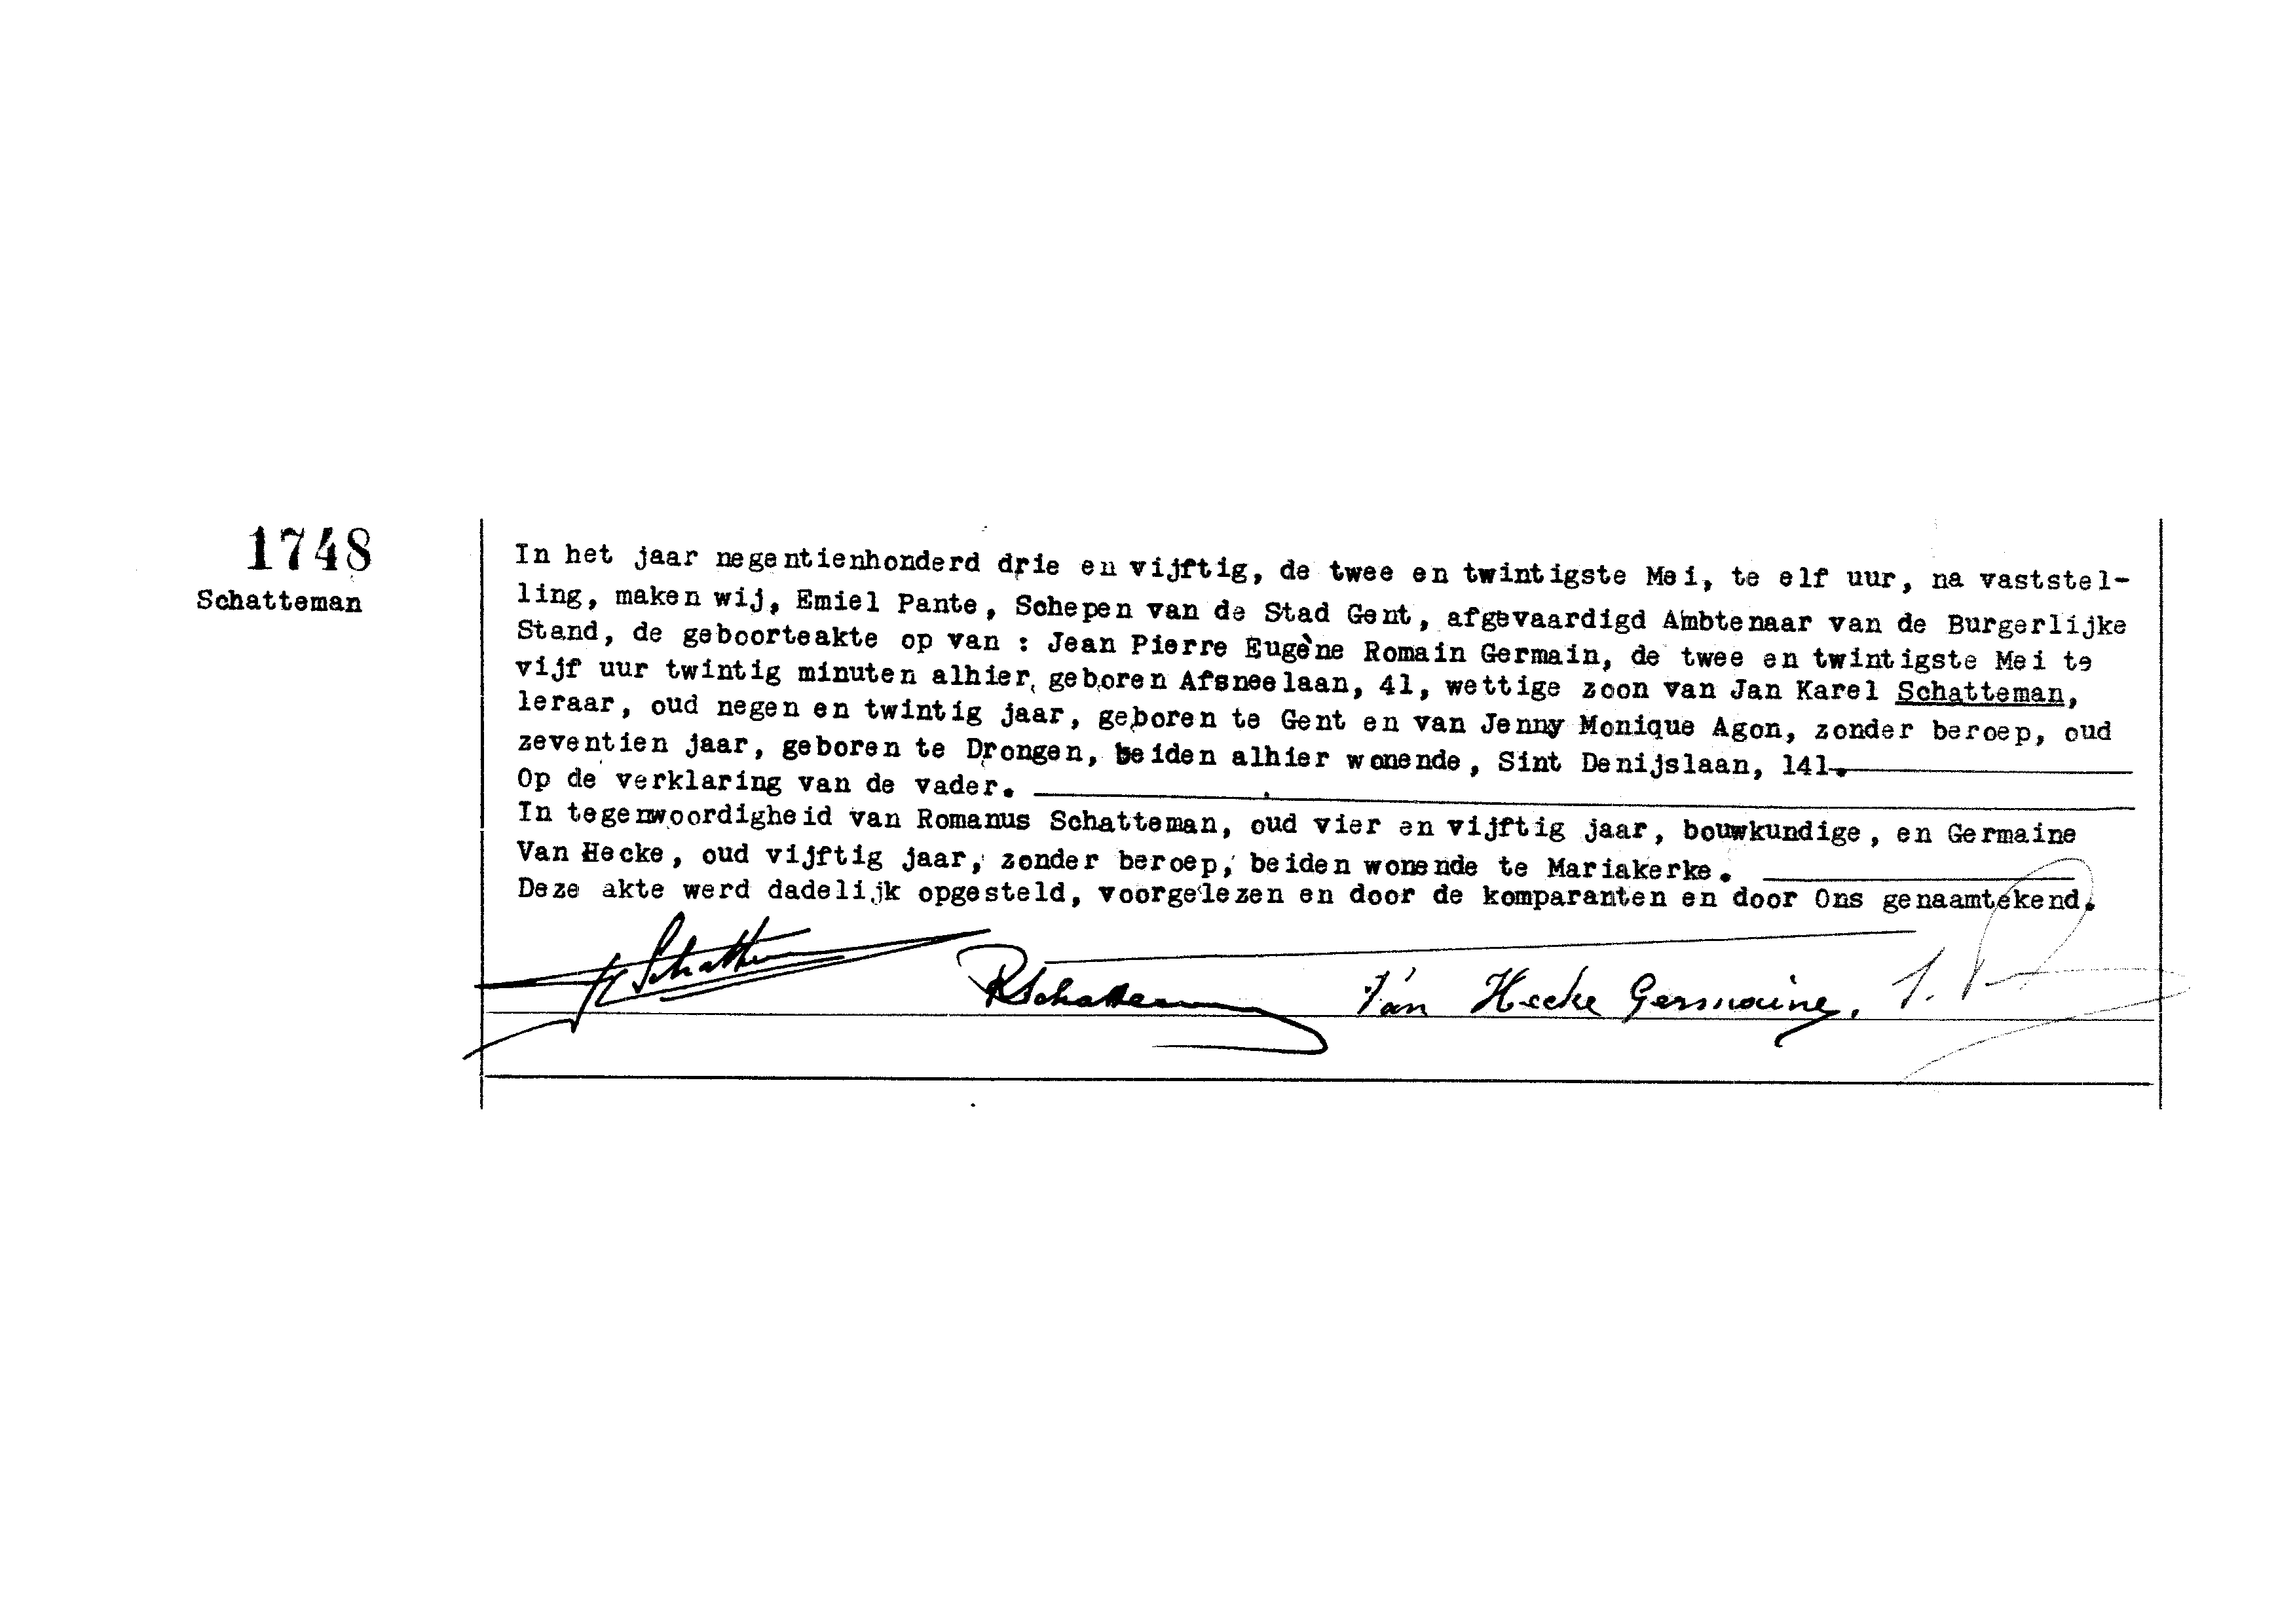 1748
Schatteman
In het jaar negentienhonderd drie en vijftig, de twee en twintigste Mei, te elf uur, na vaststel-
ling, maken wij, Emiel Pante, Schepen van de Stad Gent, afgevaardigd Ambtenaar van de Burgerlijke
Stand, de geboorteakte op van : Jean Pierre Eugène Romain Germain, de twee en twintigste Mei te
vijf uur twintig minuten alhier geboren Afsneelaan, 41, wettige zoon van Jan Karel Schatteman,
leraar, oud negen en twintig jaar, geboren te Gent en van Jenny Monique Agon, zonder beroep, oud
zeventien jaar, geboren te Drongen, beiden alhier wonende, Sint Denijslaan, 141.
Op de verklaring van de vader.
In tegenwoordigheid van Romanus Schatteman, oud vier en vijftig jaar, bouwkundige, en Germaine
Van Hecke, oud vijftig jaar, zonder beroep, beiden wonende te Mariakerke.
Deze akte werd dadelijk opgesteld, voorgelezen en door de komparanten en door Ons genaamtekend.
RSchatteman Van Hecke Germaine.